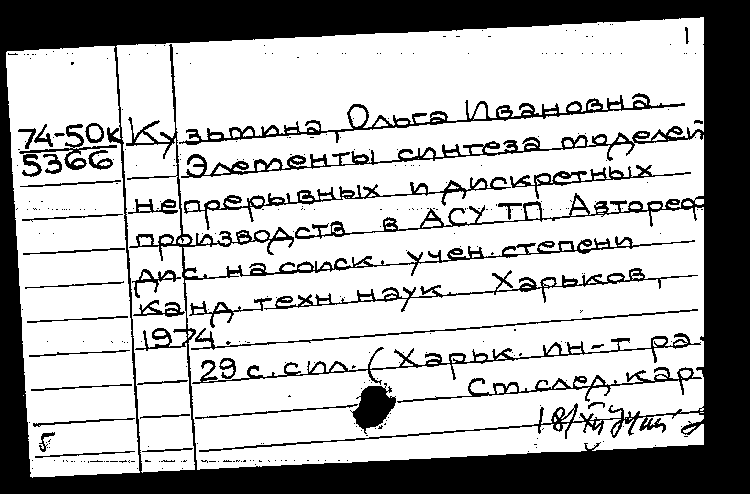 1
74-50к Кузьмина, Ольга Ивановна.
5366 Элементы синтеза моделей
непрерывных и дискретных
производств в АСУ ТП. Автореф
дис. на соиск. учен. степени
канд. техн. наук. Харьков,
1974.
29 с. с ил. (Харьк. ин-т ра
См. след. карт
б 18/XII